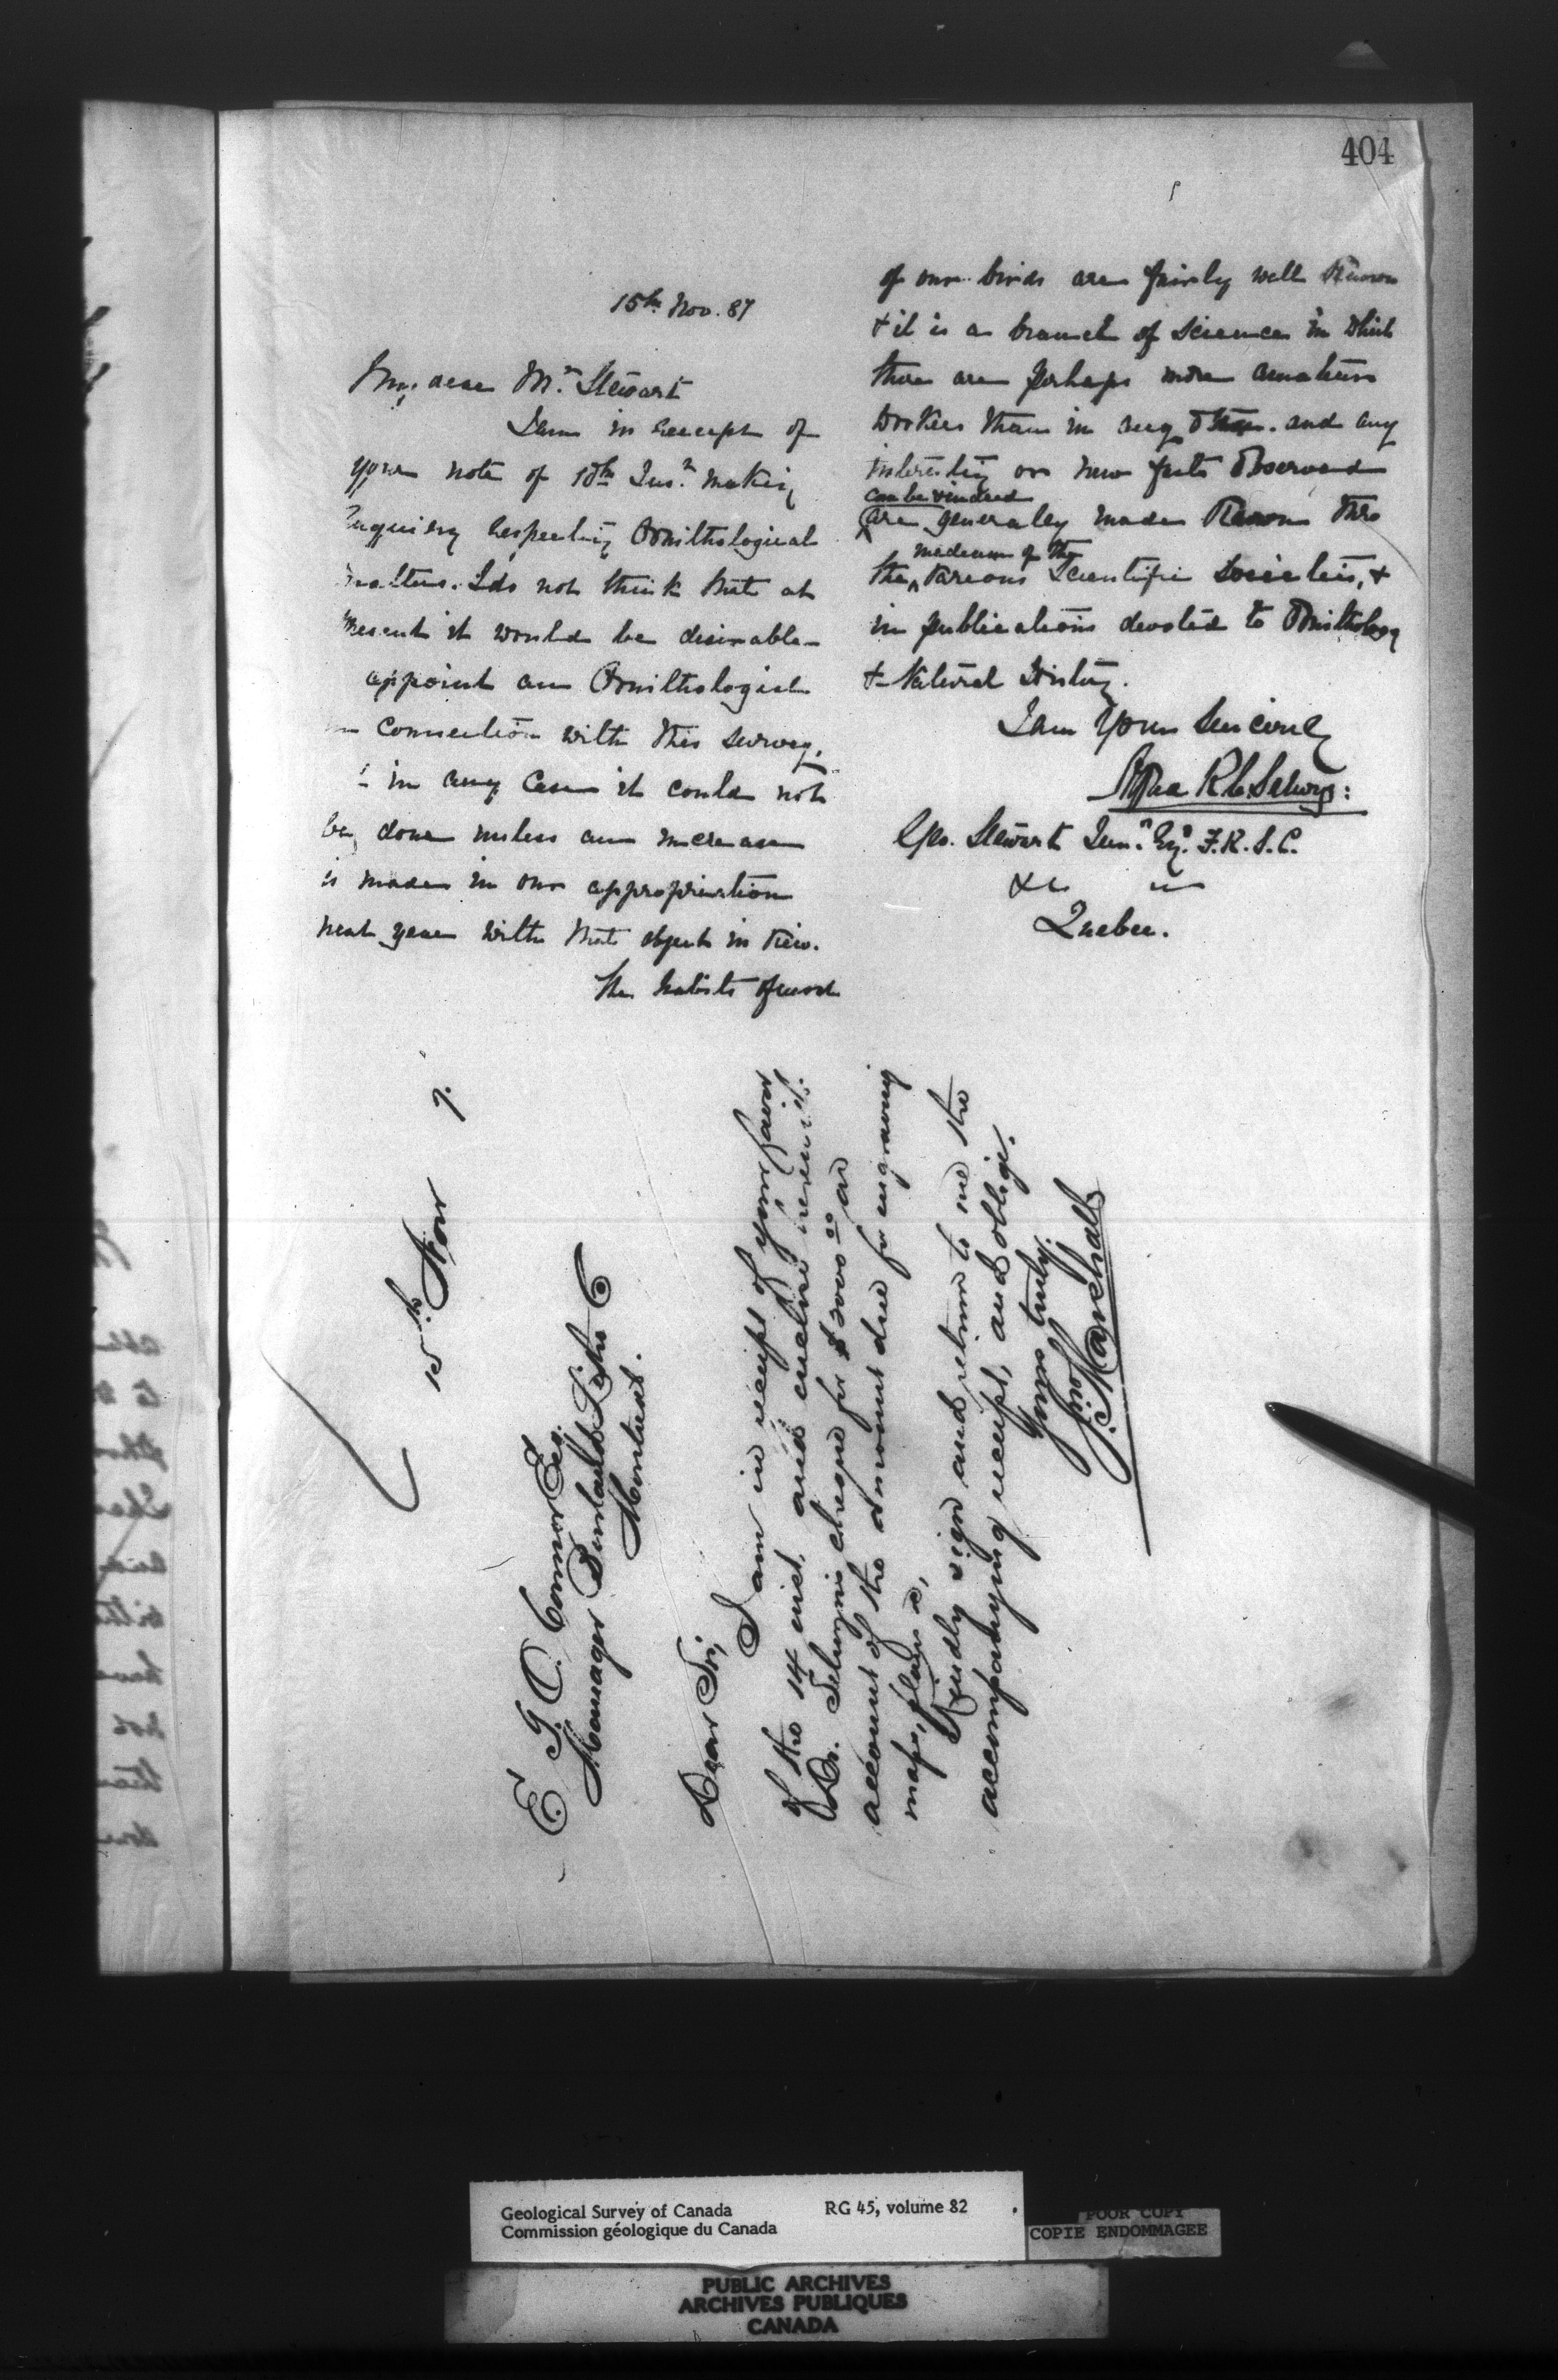 404
15th Nov. 87
My dear Mr. Stewart
I am in receipt of
your note of 10th Inst. making
Enquiry respecting Ornithological
matters. I do not think that at
present it would be desirable
appoint an Ornithologist
in connection with this survey,
& in any case it could not
be done unless an increase
is made in our appropriation
next year with that object in view.
The habits of most
of our birds are fairly well known
& it is a branch of science in which
there are perhaps more amateur
workers than in any other. and any
interesting or new facts observed
can be & indeed
are generally made known thro
medium of the
the various scientific societies, &
in publications devoted to Ornithology
& Natural History.
I am Yours Sincerely
Alfred R C Selwyn:
Geo. Stewart Junr. Esq. F.R.S.C.
&c &c
Quebec.
15th Nov 7.
E. J. O. Connor Esq.
Manager Burland Litho Co
Montreal.
Dear Sir,
I am in receipt of your favor
of the 14 inst. and enclose herewith
Dr. Selwyn's cheque for $2000 00 on
account of the amount due for engraving
maps, plans &c,
Kindly sign and return to me the
accompanying receipt, and oblige.
Yours truly.
Jno. Marshall
Geological Survey of Canada RG 45, volume 82
Commission géologique du Canada
POOR COPY
COPIE ENDOMMAGEE
PUBLIC ARCHIVES
ARCHIVES PUBLIQUES
CANADA